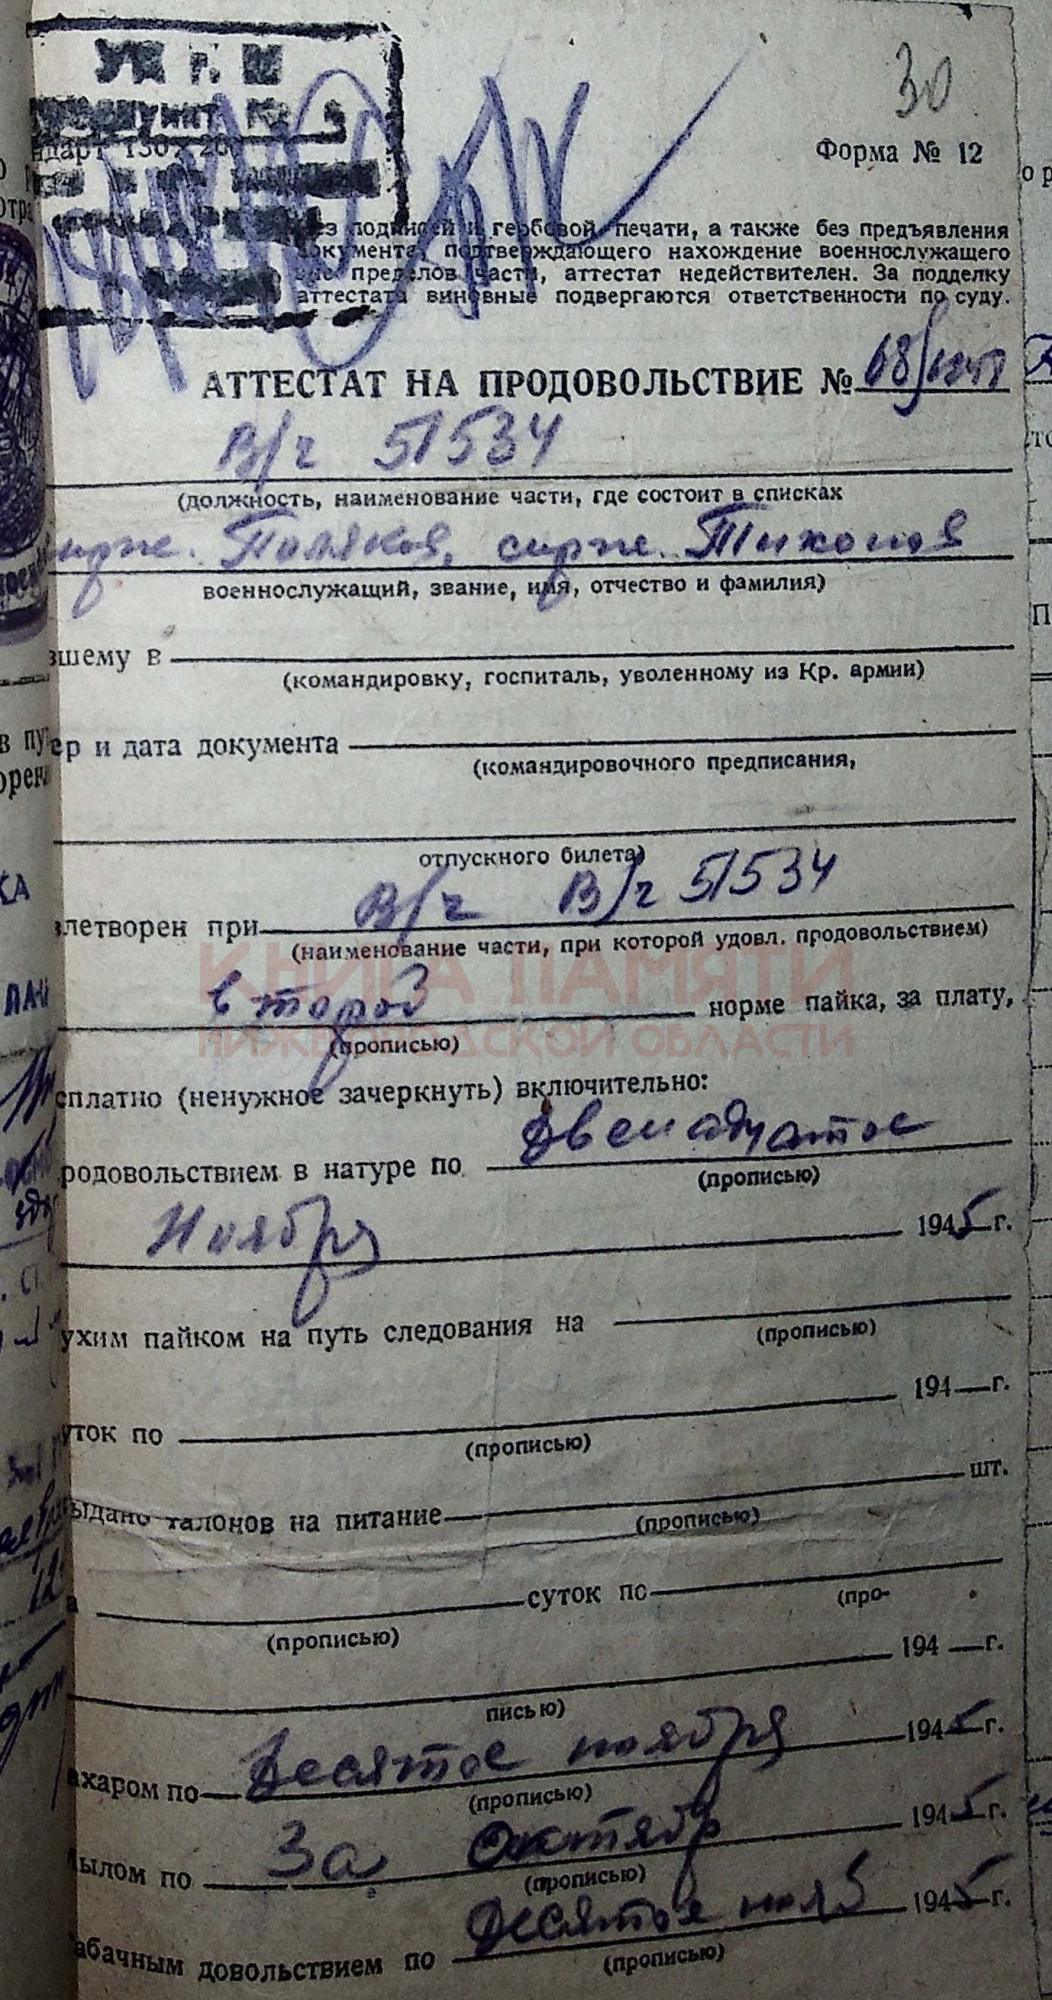 30
УК г.
Форма № 12
ез подписей и гербовой печати, а также без предъявления
окумента, подтверждающего нахождение военнослужащего
вне пределов части, аттестат недействителен. За подделку
аттестата виновные подвергаются ответственности по суду.
АТТЕСТАТ НА ПРОДОВОЛЬСТВИЕ № 68/
В/ч 51534
(должность, наименование части, где состоит в списках
серж. Поляков, серж. Тихонов
военнослужащий, звание, имя, отчество и фамилия)
вшему в
(командировку, госпиталь, уволенному из Кр. армии)
ер и дата документа
(командировочного предписания,
отпускного билета)
влетворен при В/ч В/ч 51534
(наименование части, при которой удовл. продовольствием)
КНИГА ПАМЯТИ
второй норме пайка, за плату,
НИЖЕГОРОДСКОЙ ОБЛАСТИ
(прописью)
сплатно (ненужное зачеркнуть) включительно:
родовольствием в натуре по Двенадцатое
(прописью)
Ноября 1945 г.
ухим пайком на путь следования на
(прописью)
194 г.
уток по
(прописью)
ыдано талонов на питание шт.
(прописью)
а суток по
(про-
(прописью)
194 г.
писью)
ахаром по Десятое ноября 1945 г.
(прописью)
мылом по За Октябр 1945 г.
(прописью)
абачным довольствием по Десятое нояб 1945 г.
(прописью)